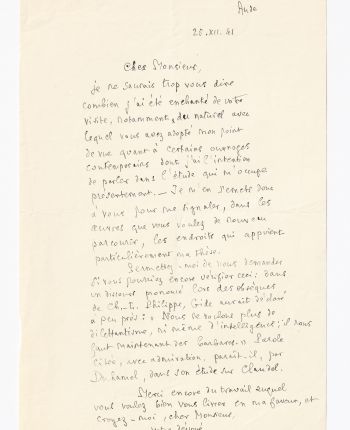 Aude
25.XII.41
Cher Monsieur,
je ne saurais trop vous dire
combien j'ai été enchanté de votre
visite, notamment, du naturel avec
lequel vous avez adopté mon point
de vue quant à certains ouvrages
contemporains dont j'ai l'intention
de parler dans l'étude qui m'occupe
présentement. — Je m'en remets donc
à vous pour me signaler, dans les
œuvres que vous voulez de nouveau
parcourir, les endroits qui appuient
particulièrement ma thèse.
Permettez-moi de vous demander
si vous pourriez encore vérifier ceci : dans
un discours prononcé lors des obsèques
de Ch.-L. Philippe, Gide aurait déclaré
à peu près : « Nous ne voulons plus de
dilettantisme, ni même d'intelligence ; il nous
faut maintenant des barbares. » Parole
citée, avec admiration, paraît-il, par
Duhamel, dans son étude sur Claudel.
Merci encore du travail auquel
vous voulez bien vous livrer en ma faveur, et
croyez-moi, cher Monsieur,
votre dévoué